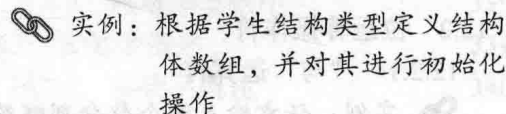 实例：根据学生结构类型定义结构
体数组，并对其进行初始化
操作